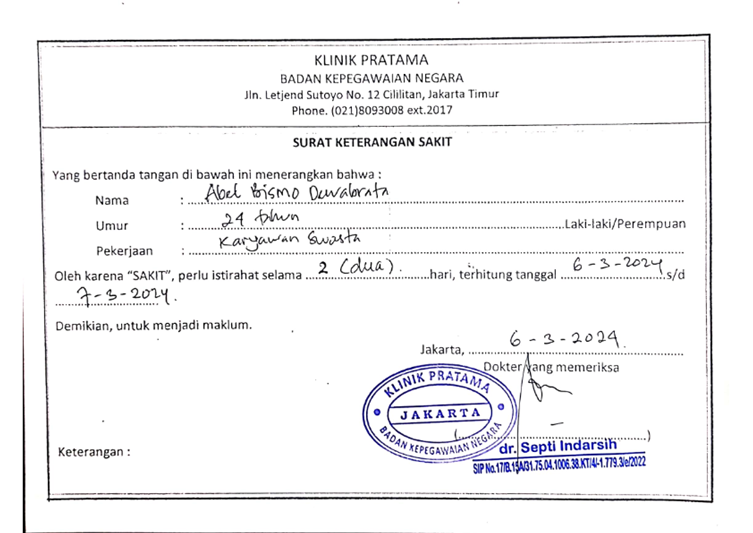 KLINIK PRATAMA
BADAN KEPEGAWAIAN NEGARA
Jln. Letjend Sutoyo No. 12 Cililitan, Jakarta Timur
Phone. (021)8093008 ext.2017
SURAT KETERANGAN SAKIT
Yang bertanda tangan di bawah ini menerangkan bahwa :
Nama : Abel Bismo Dewabrata
Umur : 24 tahun Laki-laki/Perempuan
Pekerjaan : Karyawan Swasta
Oleh karena "SAKIT", perlu istirahat selama 2 (dua) hari, terhitung tanggal 6-3-2024 s/d
7-3-2024.
Demikian, untuk menjadi maklum.
Jakarta, 6-3-2024.
Dokter yang memeriksa
KLINIK PRATAMA
JAKARTA
BADAN KEPEGAWAIAN NEGARA
Keterangan :
dr. Septi Indarsih
SIP No.17/B.15A/31.75.04.1006.38.KT/4/-1.779.3/e/2022